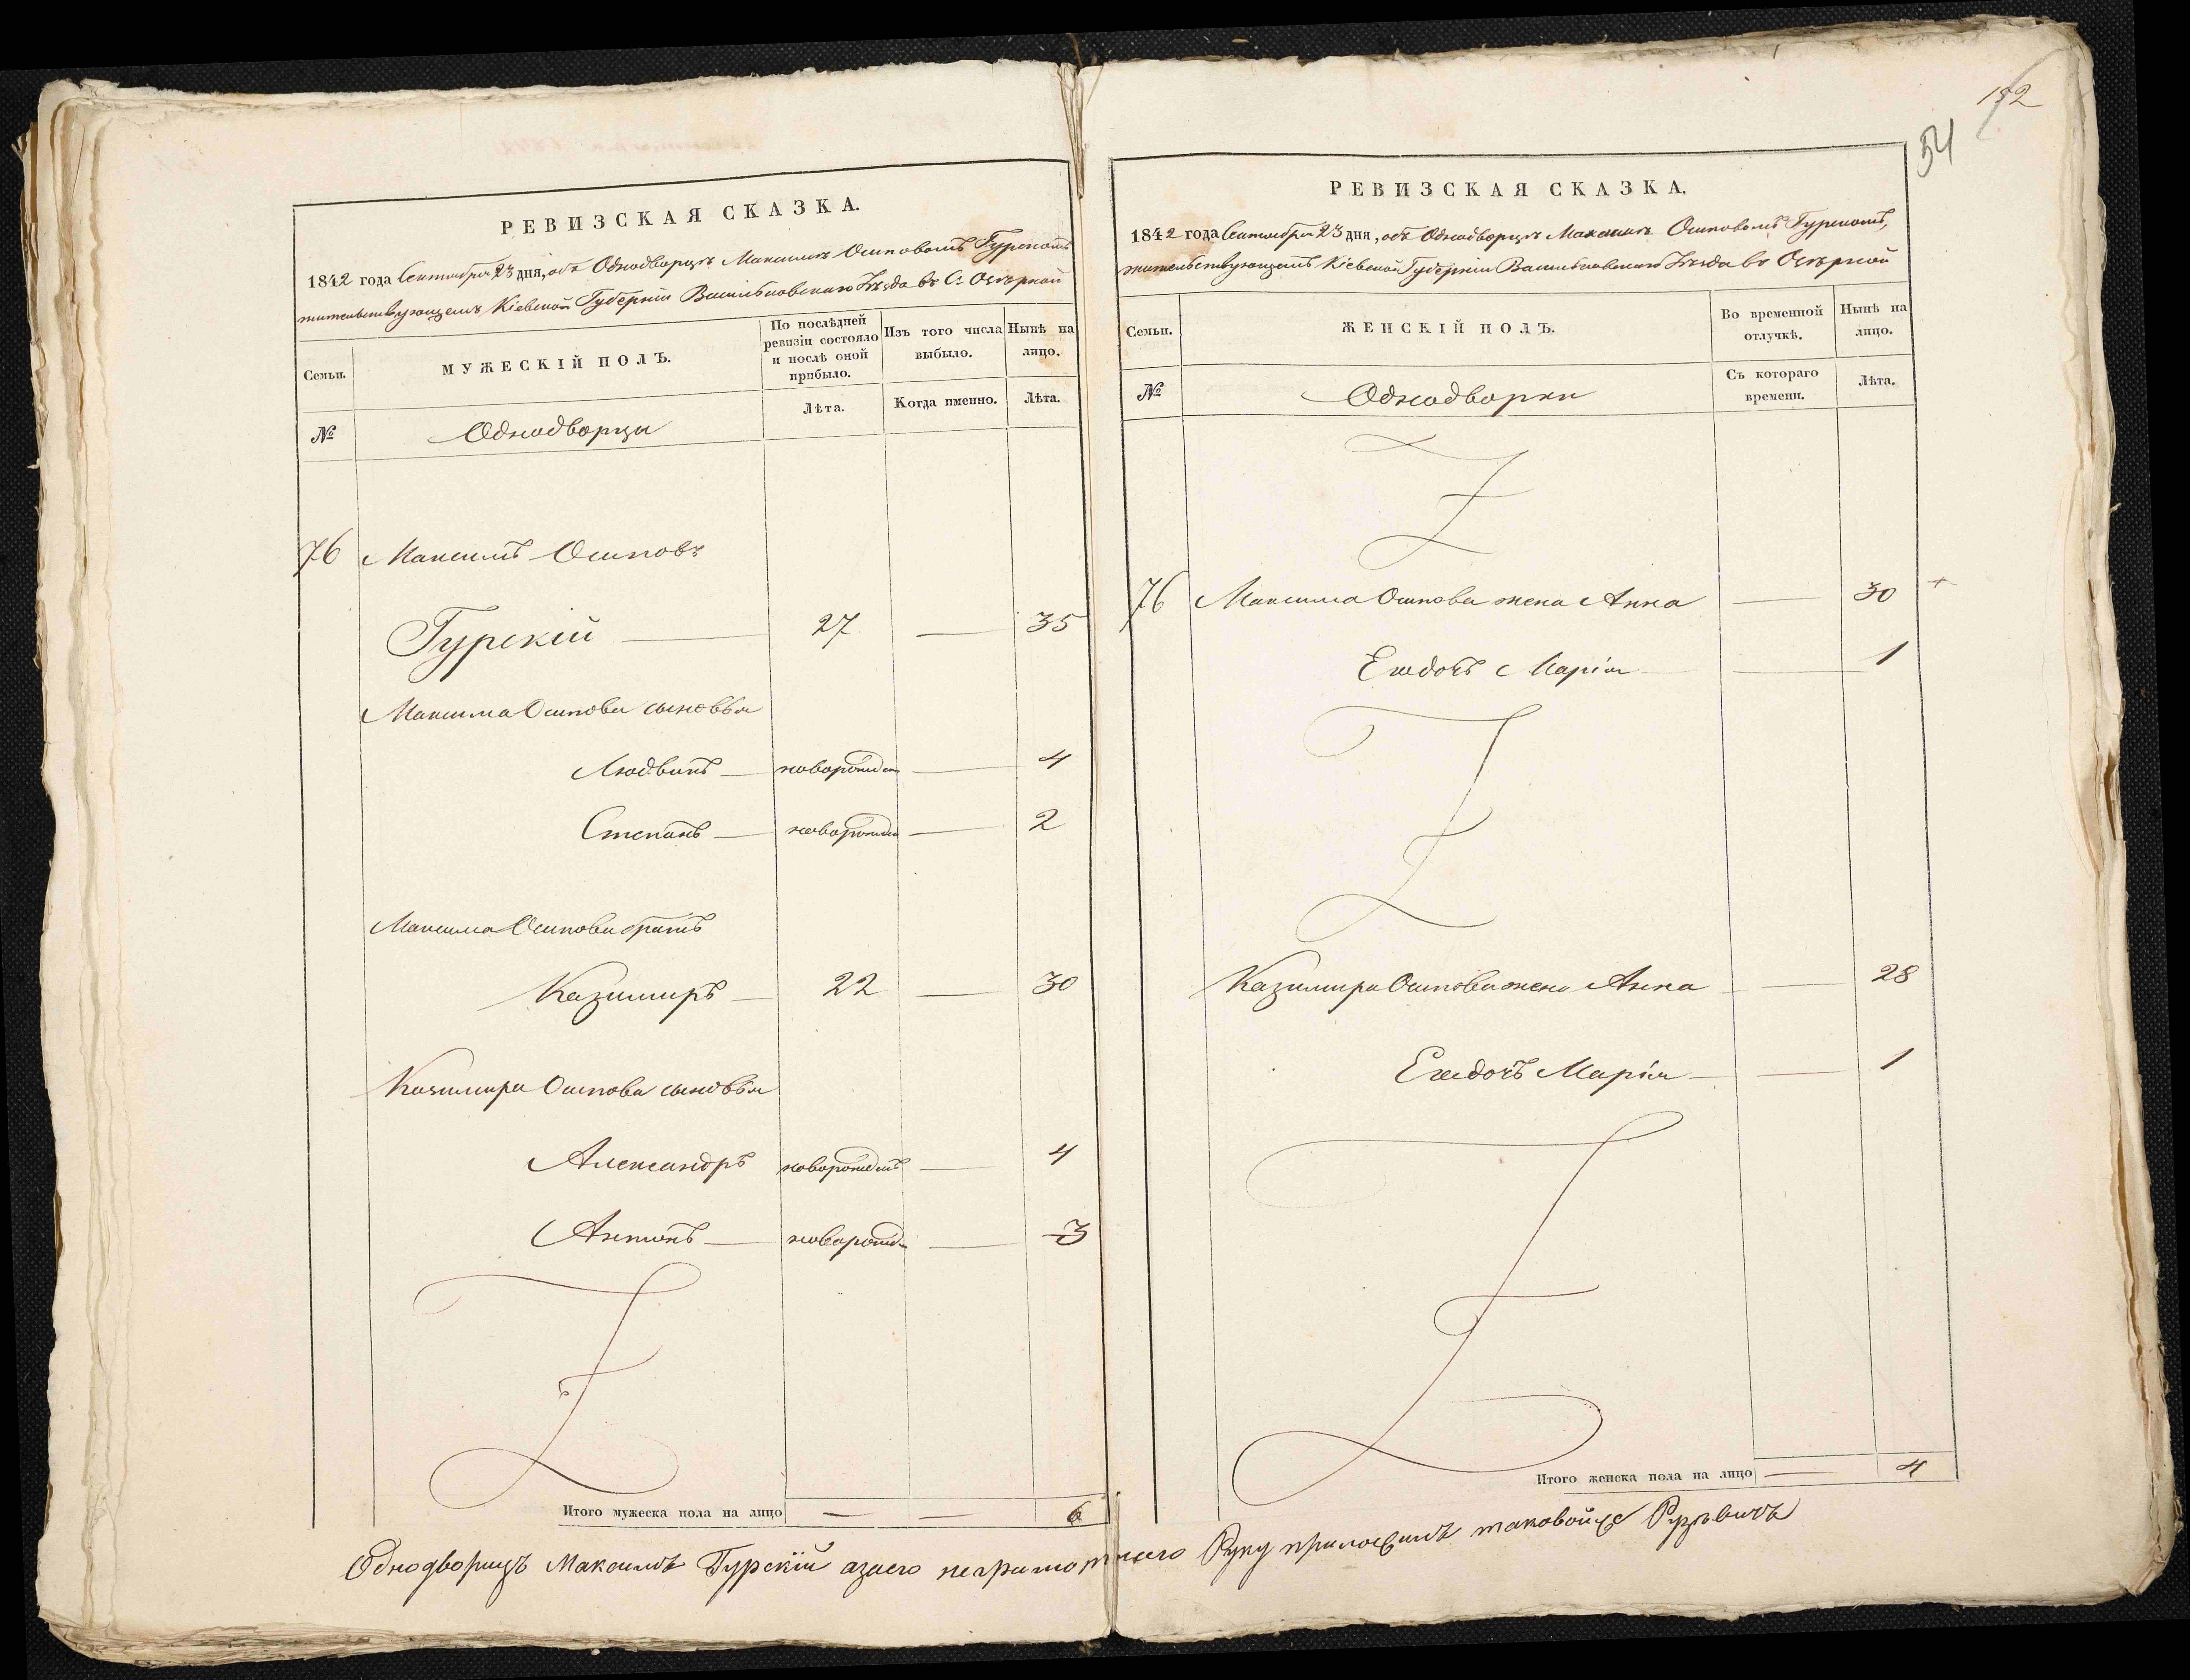 РЕВИЗСКАЯ СКАЗКА.
1842 года Сентября 23 дня, объ Однодворцѣ Максимѣ Осиповомъ Гурскомъ
жительствующемъ Кіевской Губерніи Васильковскаго Уѣзда въ С. Озѣрной
Семьи.
МУЖЕСКІЙ ПОЛЪ.
По послѣдней
ревизіи состояло
и послѣ оной
прибыло.
Изъ того числа
выбыло.
Нынѣ на
лицо.
№
Однодворцы
Лѣта.
Когда именно.
Лѣта.
76 Максимъ Осиповъ
Гурскій — 27 — 35
Максима Осипова сыновья
Людвикъ — новорожден — 4
Степанъ — новорожден — 2
Максима Осипова братъ
Казимиръ — 22 — 30
Казимира Осипова сыновья
Александръ новорожденъ — 4
Антонъ — новорожден — 3
Итого мужеска пола на лицо — — 6
152
54
РЕВИЗСКАЯ СКАЗКА.
1842 года Сентября 23 дня, объ Однодворцѣ Максимѣ Осиповомъ Гурскомъ,
жительствующемъ Кіевской Губерніи Васильковскаго Уѣзда въ Озѣрной
Семьи.
ЖЕНСКІЙ ПОЛЪ.
Во временной
отлучкѣ.
Нынѣ на
лицо.
№
Однодворки
Съ котораго
времени.
Лѣта.
76 Максима Осипова жена Анна — 30 +
Ея дочь Марія — 1
Казимира Осипова жена Анна — 28
Ея дочь Марія — 1
Итого женска пола на лицо — 4
Однодворецъ Максимъ Гурскій азаего неграмотнаго Руку приложилъ таковойже